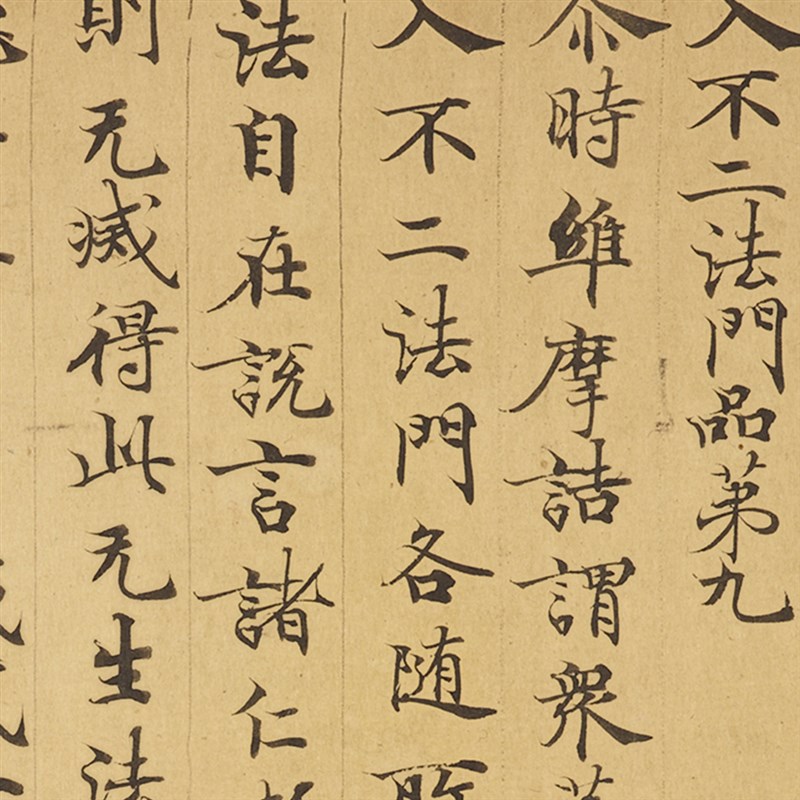 入不二法門品苐九
尒時維摩詰謂衆
入不二法門各随所
法自在説言諸仁
則无滅得此无生法